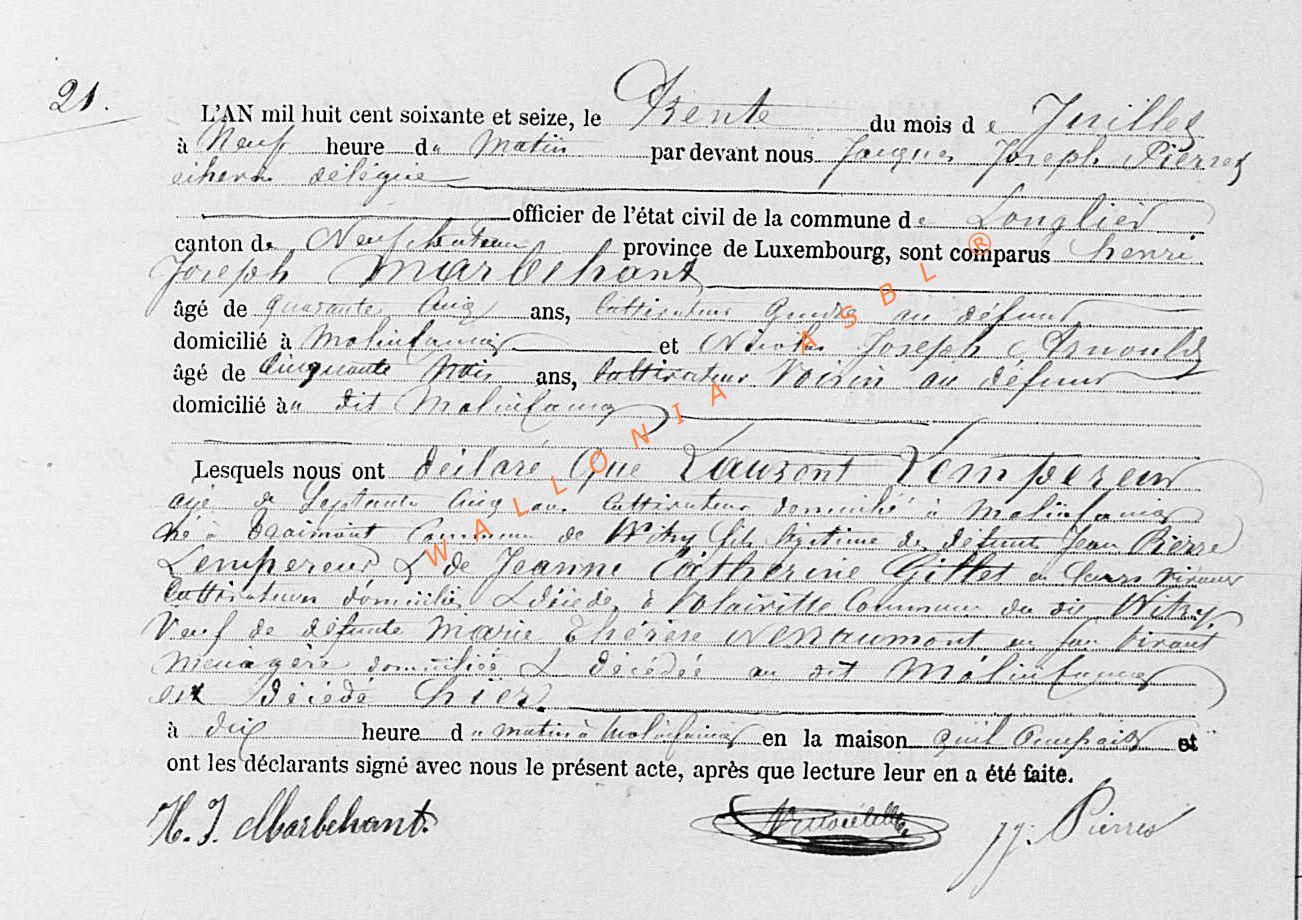 21.
L'AN mil huit cent soixante et seize, le Trente du mois de Juillet
à Neuf heure du Matin par devant nous Jacques Joseph Pierret
échevin délégué
officier de l'état civil de la commune de Longlier
canton de Neufchateau province de Luxembourg, sont comparus henri
Joseph Marbehant
âgé de quarante cinq ans, Cultivateur Gendre au défunt
domicilié à Molinfaing et Nicolas Joseph Arnould
âgé de Cinquante trois ans, Cultivateur Voisin au défunt
domicilié à u dit Molinfaing
Lesquels nous ont déclaré que Laurent Lempereur
agé de Septante Cinq ans Cultivateur domicilié à Molinfaing
né à Traimont Commune de Witry fils légitime de défunts Jean Pierre
Lempereur & de Jeanne Catherine Gillet en leurs vivant
Cultivateurs domiciliés & décédés à Volaiville Commune du dit Witry,
Veuf de défunte Marie Thérèse Neuraumont en son vivant
Menagère domiciliée & décédée au dit Molinfaing
est Décédé hier
à dix heure du matin à Molinfaing en la maison qu'il Occupait et
ont les déclarants signé avec nous le présent acte, après que lecture leur en a été faite.
H. J. Marbehant JJ. Pierret
WALLONIA ASBL ®